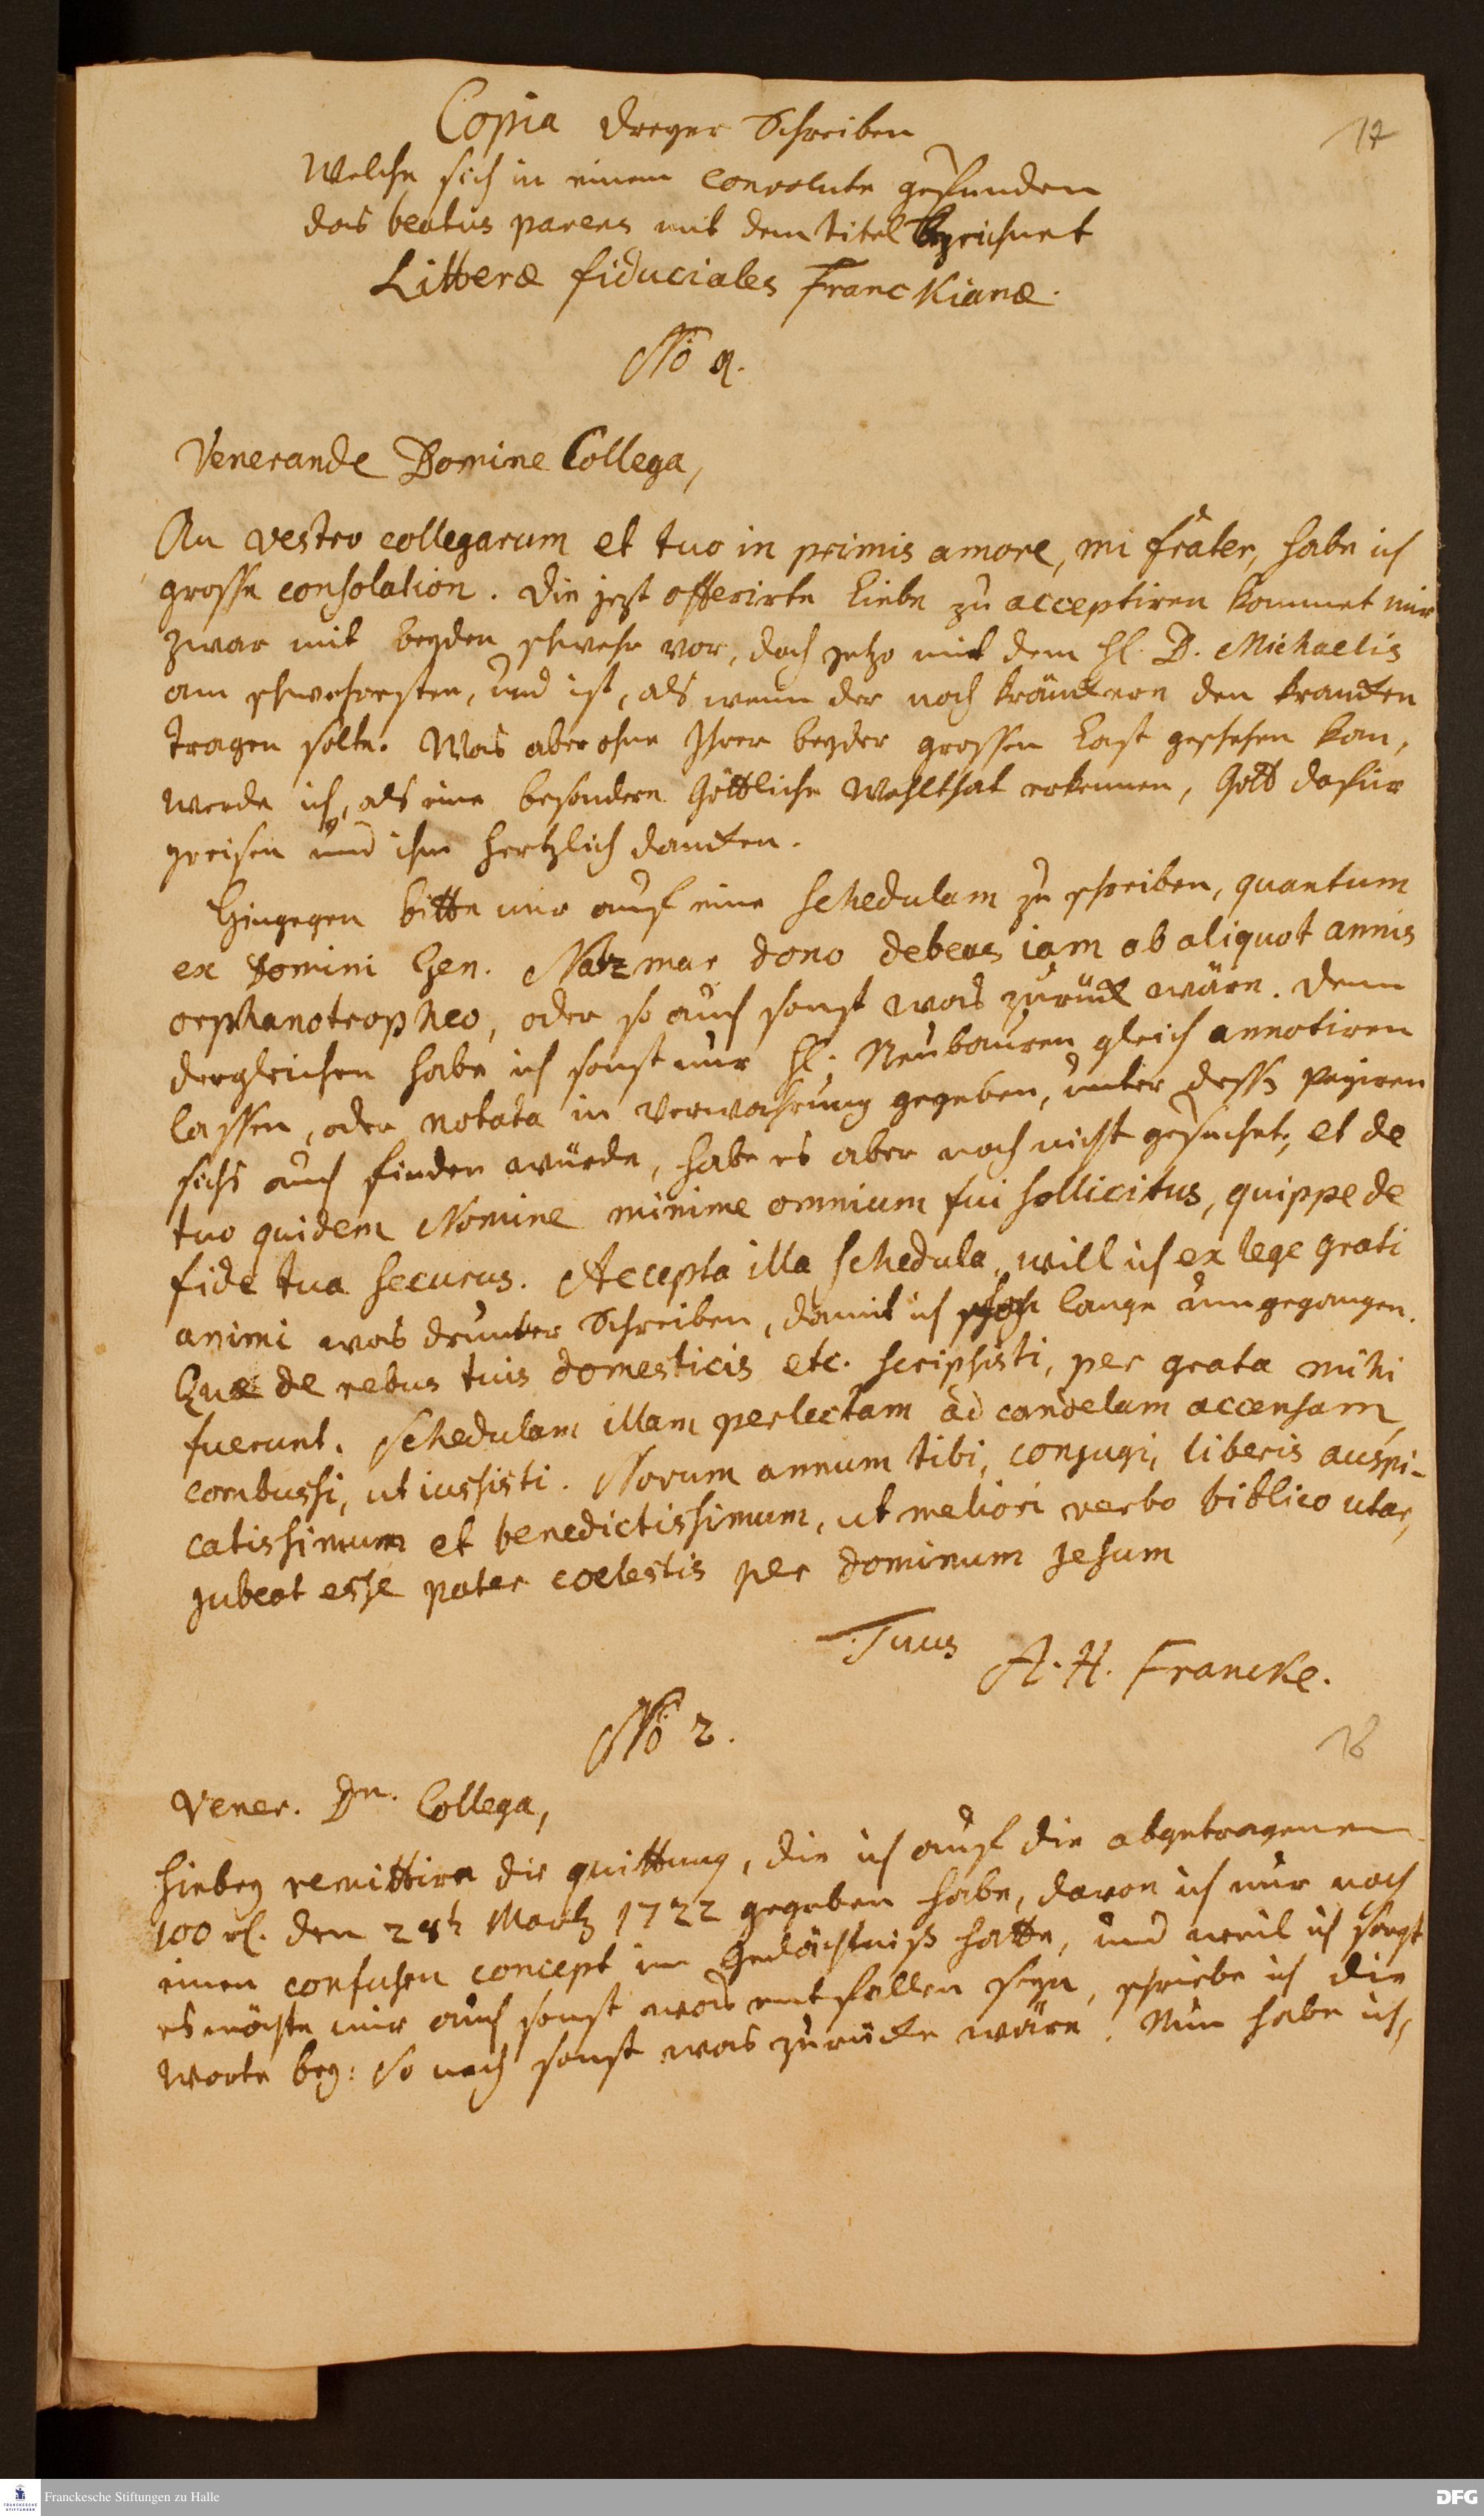 Copia dreyer Schreiben
17
Welche sich in einem convolute gefunden
das beatus parens mit dem titel bezeichnet
Litteræ fiduciales Franckianæ.
No 1.
Venerande Domine Collega,
An vestro collegarum et tuo in primis amore, mi frater, habe ich
grosse consolation. Die jezt offerirte Liebe zu acceptiren kommet mir
zwar mit beyden schwehr vor, doch jetzo mit dem Hl. D. Michaelis
am schwehresten, und ist, als wenn der noch kräncker den krancken
tragen solte. Was aber ohne Ihrer beyder grossen Last geschehen kan,
werde ich, als eine besondere Göttliche Wohlthat erkennen, Gott dafür
preisen und ihm hertzlich dancken.
Hingegen bitte mir auf eine schedulam zu schreiben, quantum
ex Domini Gen. Natzmar dono debeas iam ab aliquot annis
orphanotropheo, oder so auch sonst was zurück wäre. Denn
dergleichen habe ich sonst nur Hl. Neubauren gleich annotiren
lassen, oder notata in Verwahrung gegeben, unter dess
sichs auch finden würde, habe es aber noch nicht gesuchet; et de
tuo quidem Nomine minime omnium fui sollicitus, quippe de
fide tua securus. Accepta illa schedula, will ich ex lege grati
animi was drunter Schreiben, damit ich lange umgegangen.
Quæ de rebus tuis domesticis etc. scripsisti, per grata mihi
fuerunt. Schedulam illam perlectam ad candelam accensam
combussi, ut iussisti. Novum annum tibi, conjugi, liberis auspi-
catissimum et benedictissimum, ut meliori verbo biblico utar,
jubeat esse pater coelestis per dominum Jesum
Tuus
A. H. Francke.
No 2.
18
Vener. Dn. Collega,
Hiebey remittire die quittung, die ich auf die abgetragenen
100 rl. den 28t Martz 1722 gegeben habe, davon ich nur noch
einen confusen concept im Gedächtniß hatte, und weil ich sorgte
es möchte mir auch sonst was entfallen seyn, schriebe ich die
Worte bey: So noch sonst was zurücke wäre. Nun habe ich,
Franckesche Stiftungen zu Halle
FRANCKESCHE STIFTUNGEN
DFG